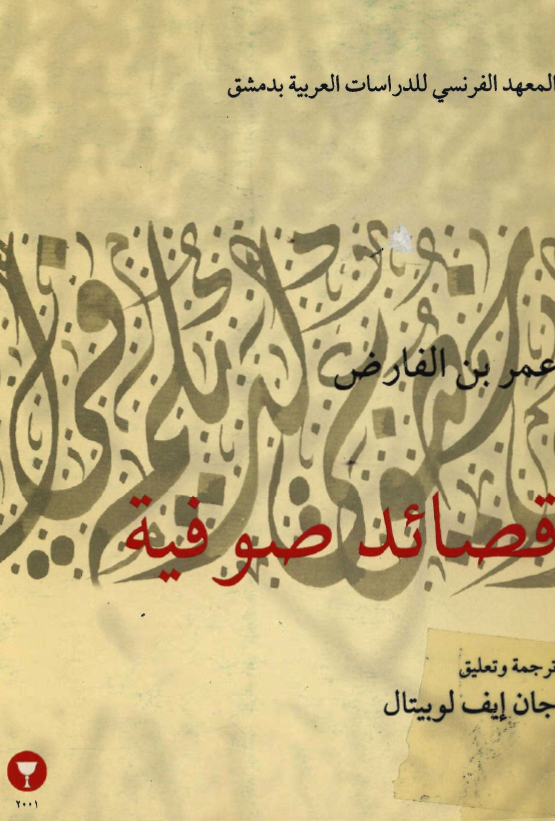 المعهد الفرنسي للدراسات العربية بدمشق
عمر بن الفارض
قصائد صوفية
ترجمة وتعليق
جان إيف لوبيتال
٢٠٠١